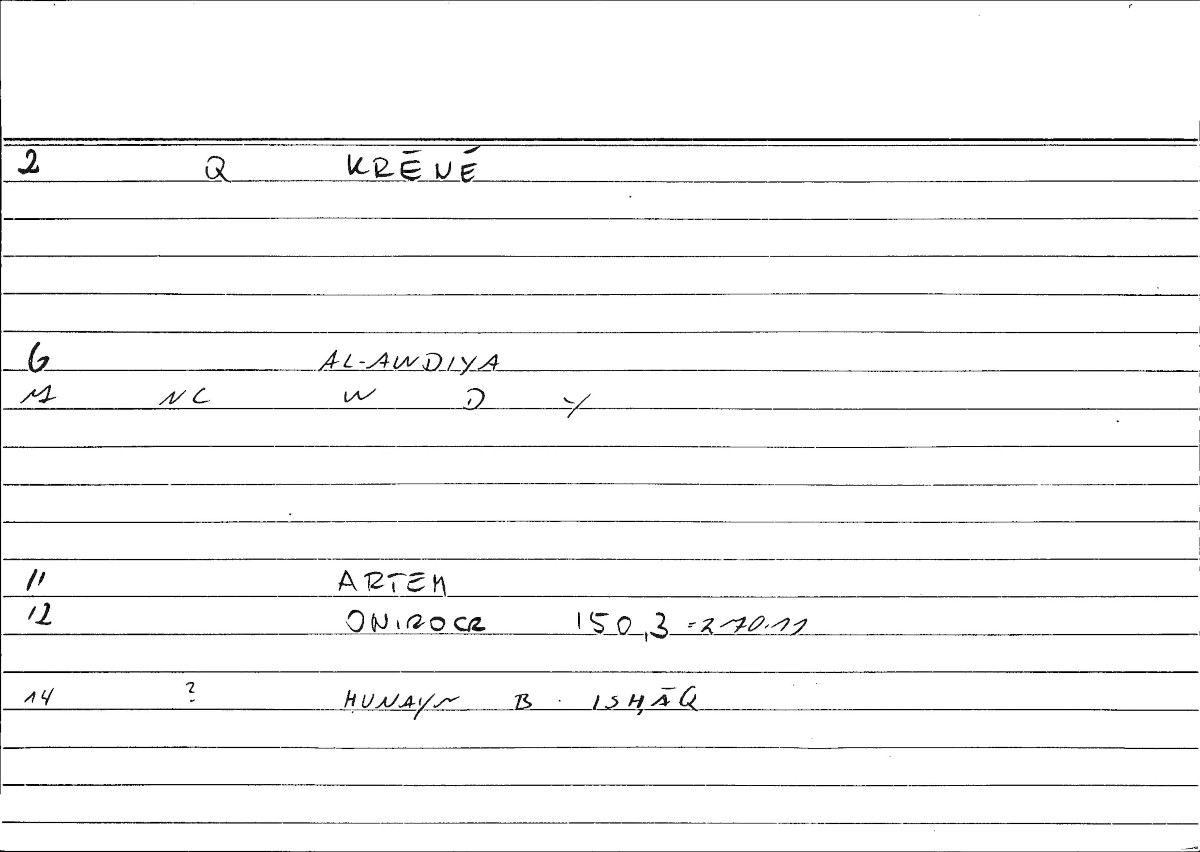 2 Q KRĒNĒ
6 AL-AWDIYA
M NC W D Y
11 ARTEM
12 ONIROCR 150,3 = 270.11
14 ? ḤUNAYN B. ISḤĀQ